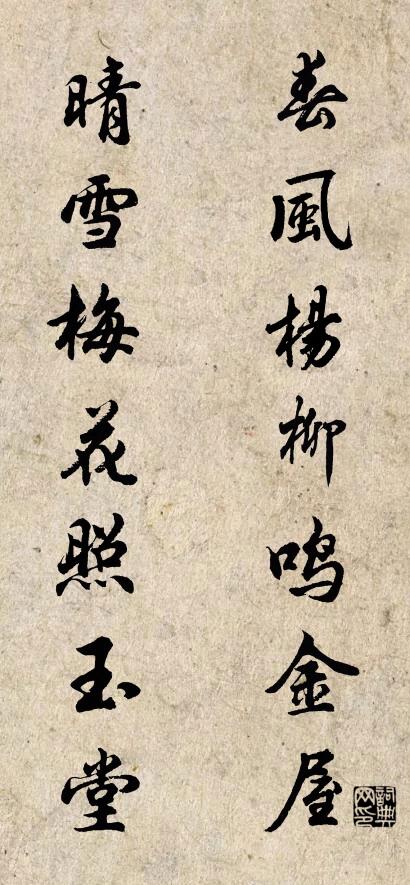 春風楊柳鸣金屋
晴雪梅花照玉堂
詞典网印